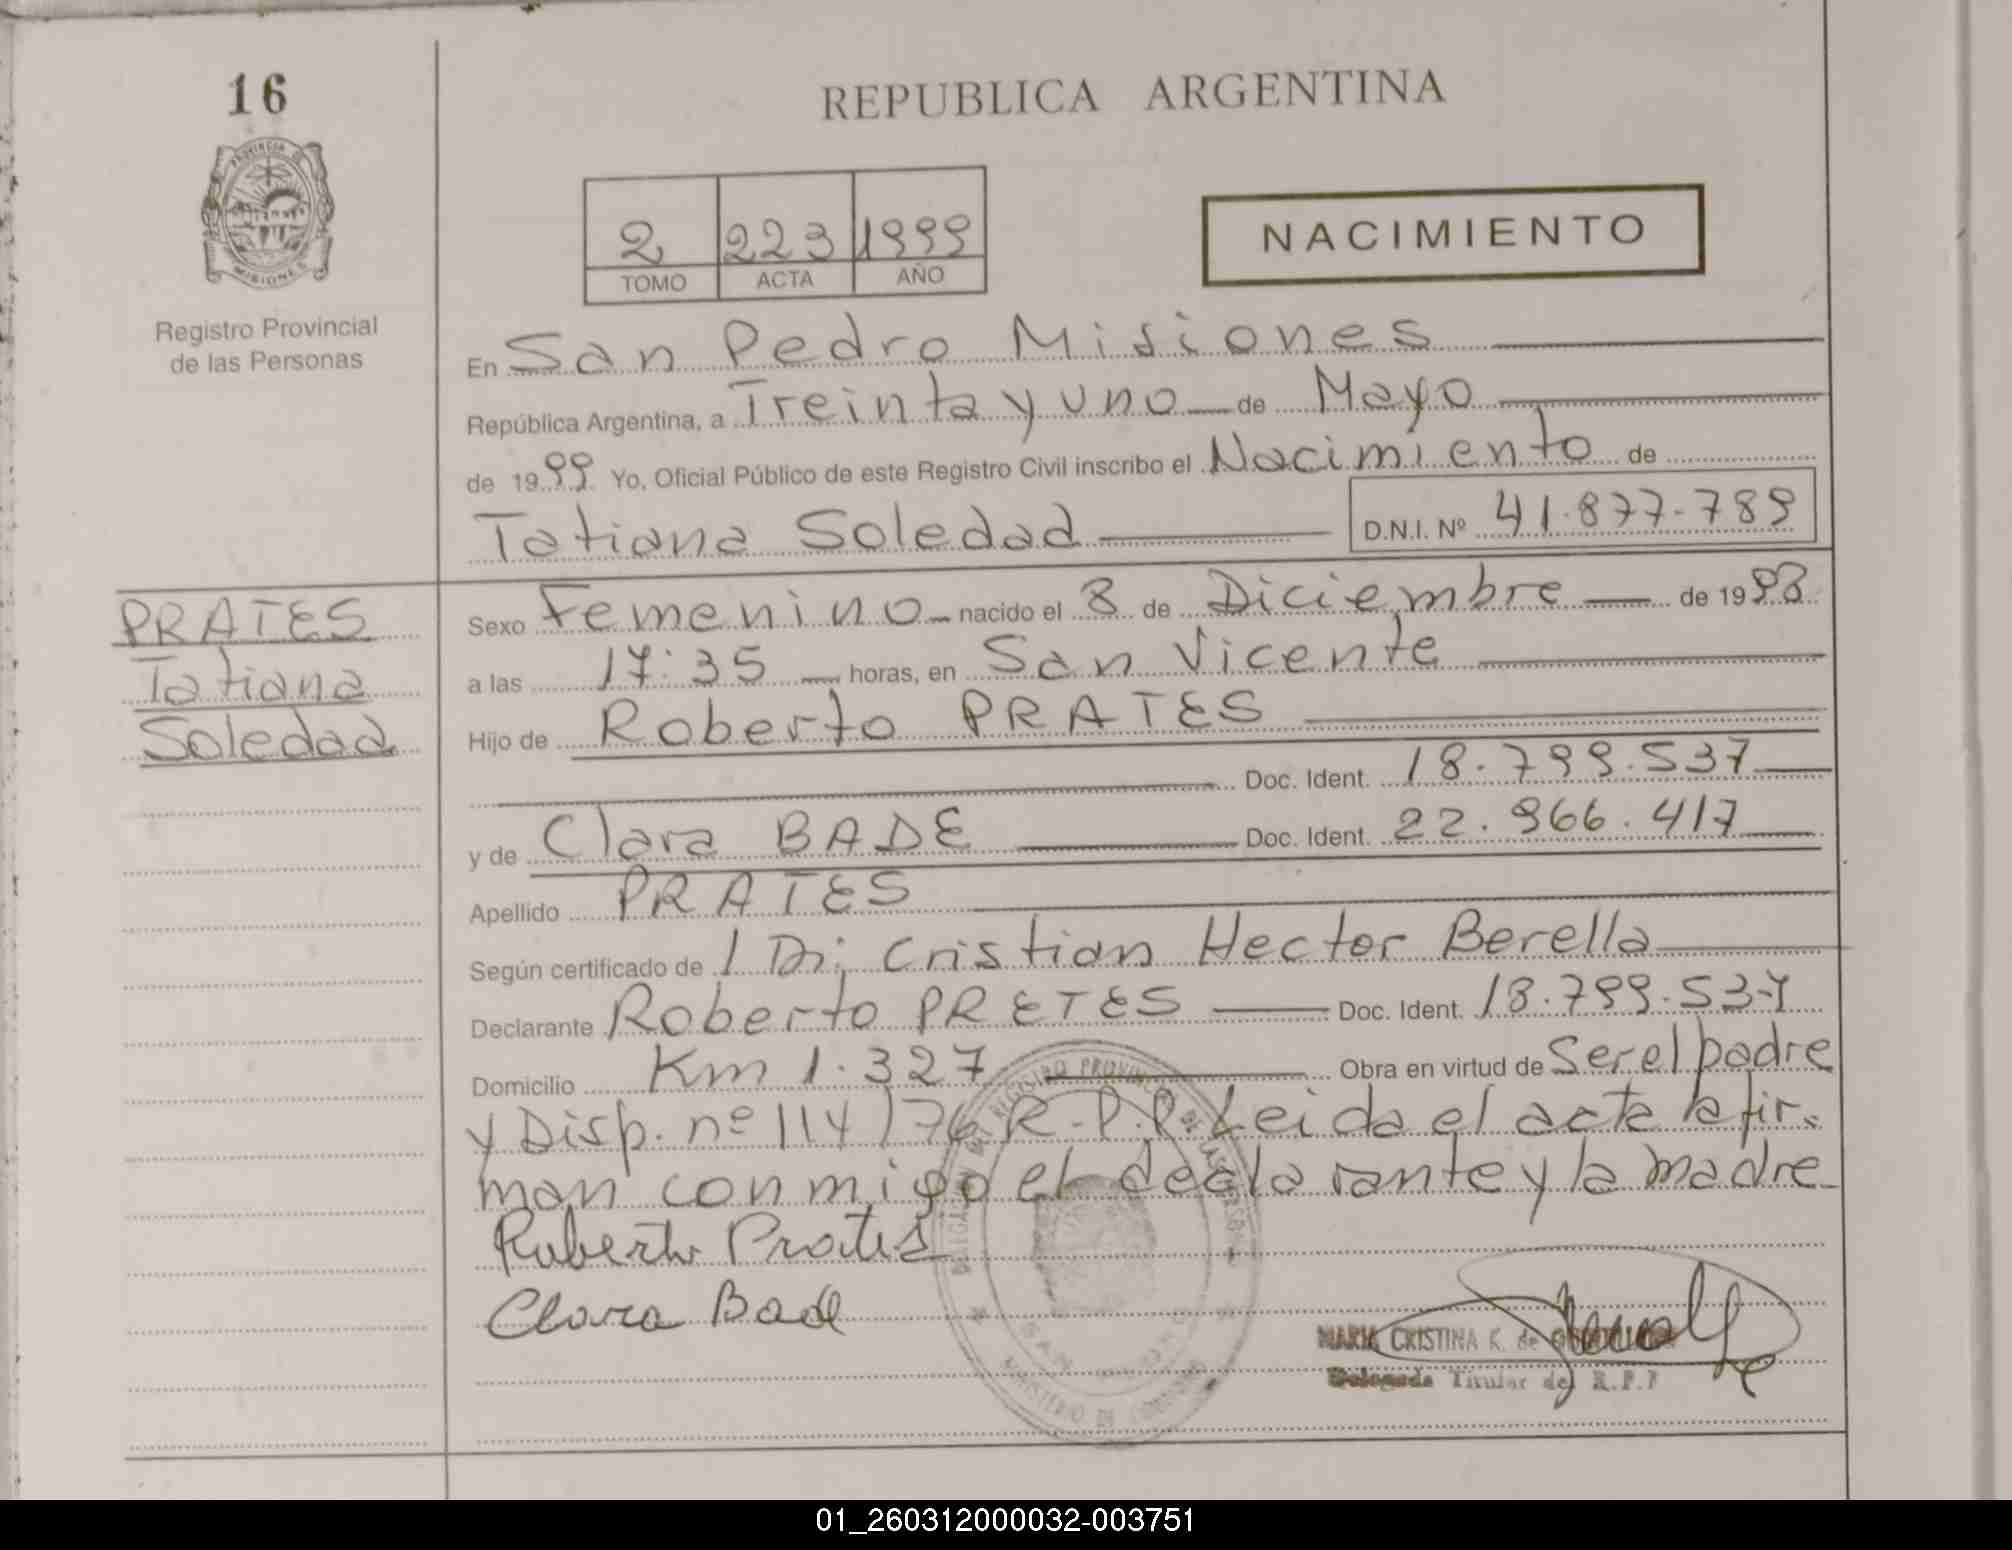 16
REPUBLICA ARGENTINA
PROVINCIA DE
MISIONES
Registro Provincial
de las Personas
2 223 1999
TOMO ACTA AÑO
NACIMIENTO
En San Pedro Misiones
República Argentina, a Treinta y uno de Mayo
de 1999 Yo, Oficial Público de este Registro Civil inscribo el Nacimiento de
Tatiana Soledad D.N.I. Nº 41.877.789
PRATES
Tatiana
Soledad
Sexo Femenino nacido el 8 de Diciembre de 1998
a las 17:35 horas, en San Vicente
Hijo de Roberto PRATES
Doc. Ident. 18.799.537
y de Clara BADE Doc. Ident. 22.966.417
Apellido PRATES
Según certificado de 1 Dr; Cristian Hector Berella
Declarante Roberto PRETES Doc. Ident. 18.799.537
Domicilio Km 1.327 Obra en virtud de Ser el padre
y Disp. nº 114/76 R.P.P. Leida el acta la fir-
man conmigo el declarante y la madre
Roberto Prates
Clara Bade
MARIA CRISTINA K. de
Delegada Titular del R.P.P
01_260312000032-003751